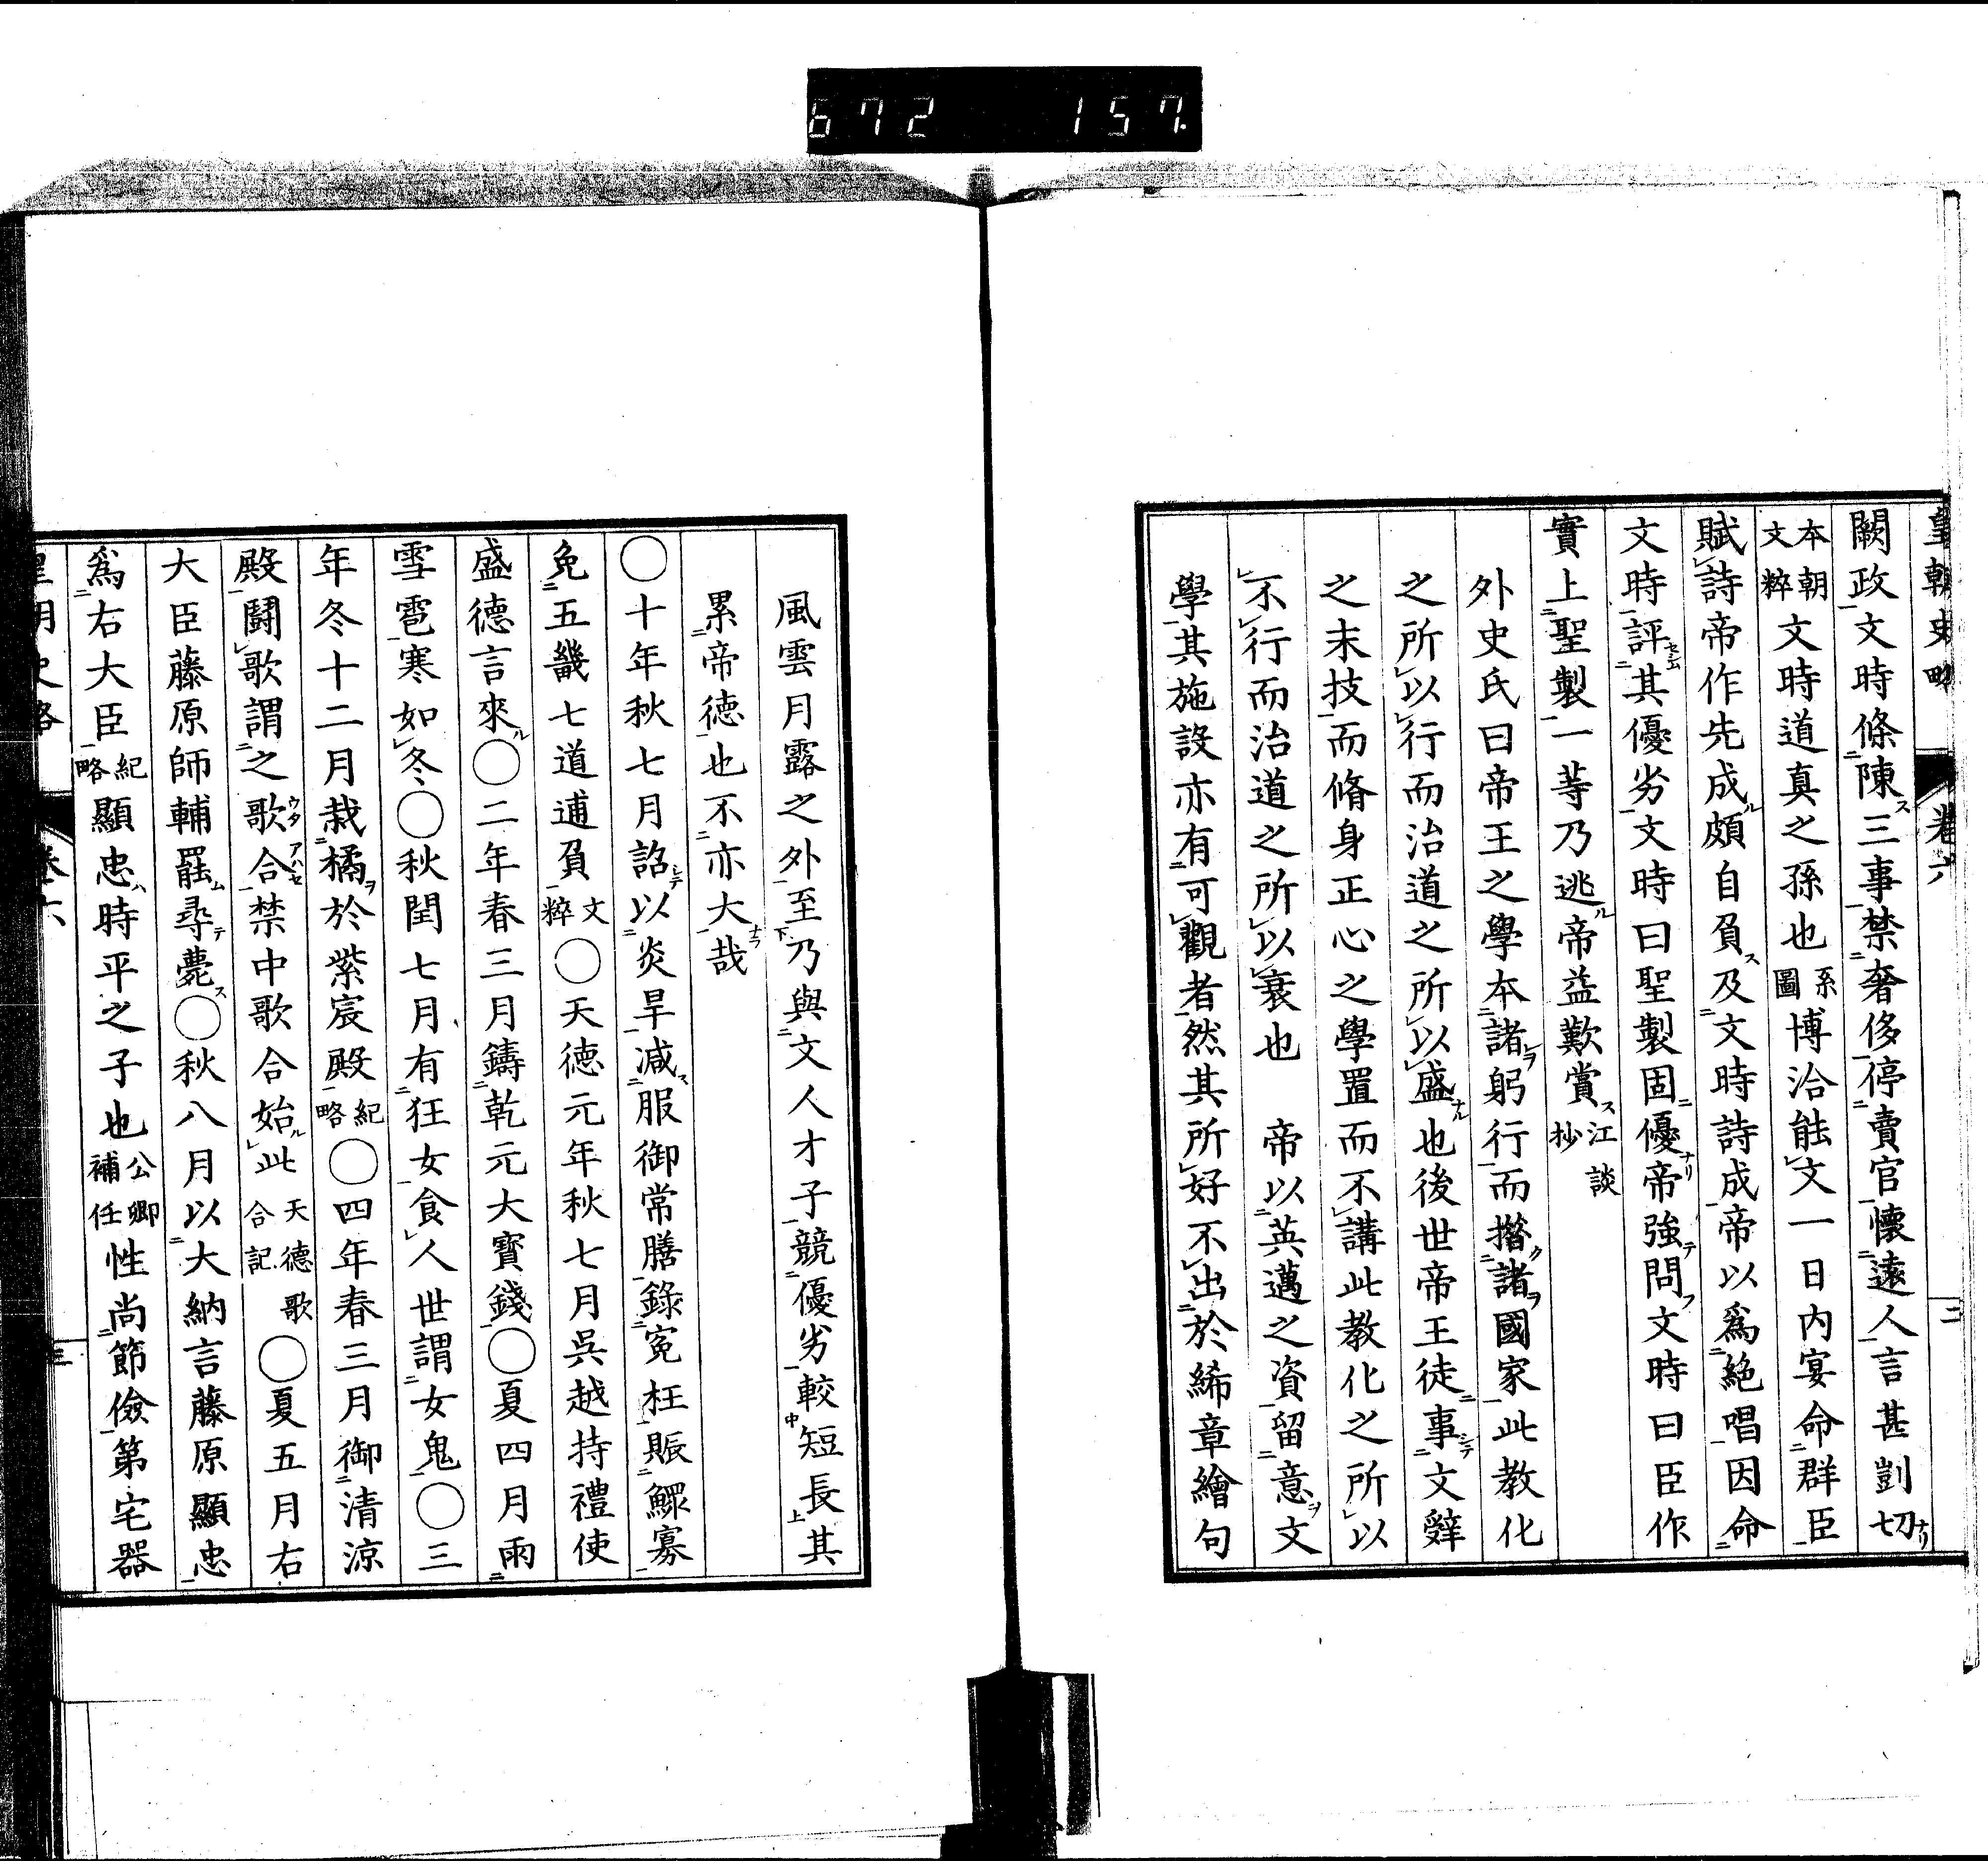 672 157
皇朝史略 卷六 二
闕政文時條陳ス三事禁奢侈停賣官懷遠人言甚剴切ナリ
本朝文粹文時道真之孫也系圖博洽能文一日内宴命群臣
賦詩帝作先成ル頗自負ス及文時詩成帝以爲絶唱因命
文時評セシム其優劣文時曰聖製固ニ優ナリ帝強テ問フ文時曰臣作
實上聖製一等乃逃ル帝益歎賞ス江談抄
外史氏曰帝王之學本諸ヲ躬行而措ク諸ヲ國家此教化
之所以行而治道之所以盛ナル也後世帝王徒ニ事シテ文辭
之末技而脩身正心之學置而不講此教化之所以
不行而治道之所以衰也 帝以英邁之資留意ヲ文
學其施設亦有可觀者然其所好不出於絺章繪句
風雲月露之外至乃與文人才子競優劣較短長其
累帝德也不亦大ナラ哉
〇十年秋七月詔シテ以炎旱减ス服御常膳錄寃枉賑鰥寡
免五畿七道逋負文粹〇天德元年秋七月吳越持禮使
盛德言來ル〇二年春三月鑄乾元大寳錢〇夏四月雨
雪雹寒如冬〇秋閏七月有狂女食人世謂女鬼〇三
年冬十二月栽橘ヲ於紫宸殿紀略〇四年春三月御清涼
殿鬪歌謂之歌合ウタアハセ禁中歌合始ル此天德歌合記〇夏五月右
大臣藤原師輔罷ム尋テ薨ス〇秋八月以大納言藤原顯忠
爲右大臣紀略顯忠ハ時平之子也公卿補任性尚節儉第宅器
皇朝史略 卷六 三